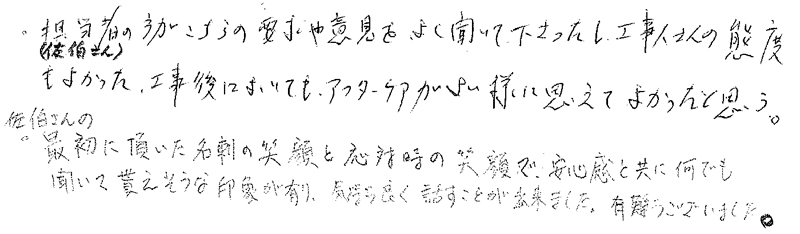 ・担当者の方がこちらの要求や意見をよく聞いて下さったし、工事人さんの態度
(佐伯さん)
もよかった。工事後においても、アフターケアがよい様に思えてよかったと思う。
佐伯さんの
。最初に頂いた名刺の笑顔と応対時の笑顔で、安心感と共に何でも
聞いて貰えそうな印象が有り、気持ち良く話すことが出来ました。有難うございました。